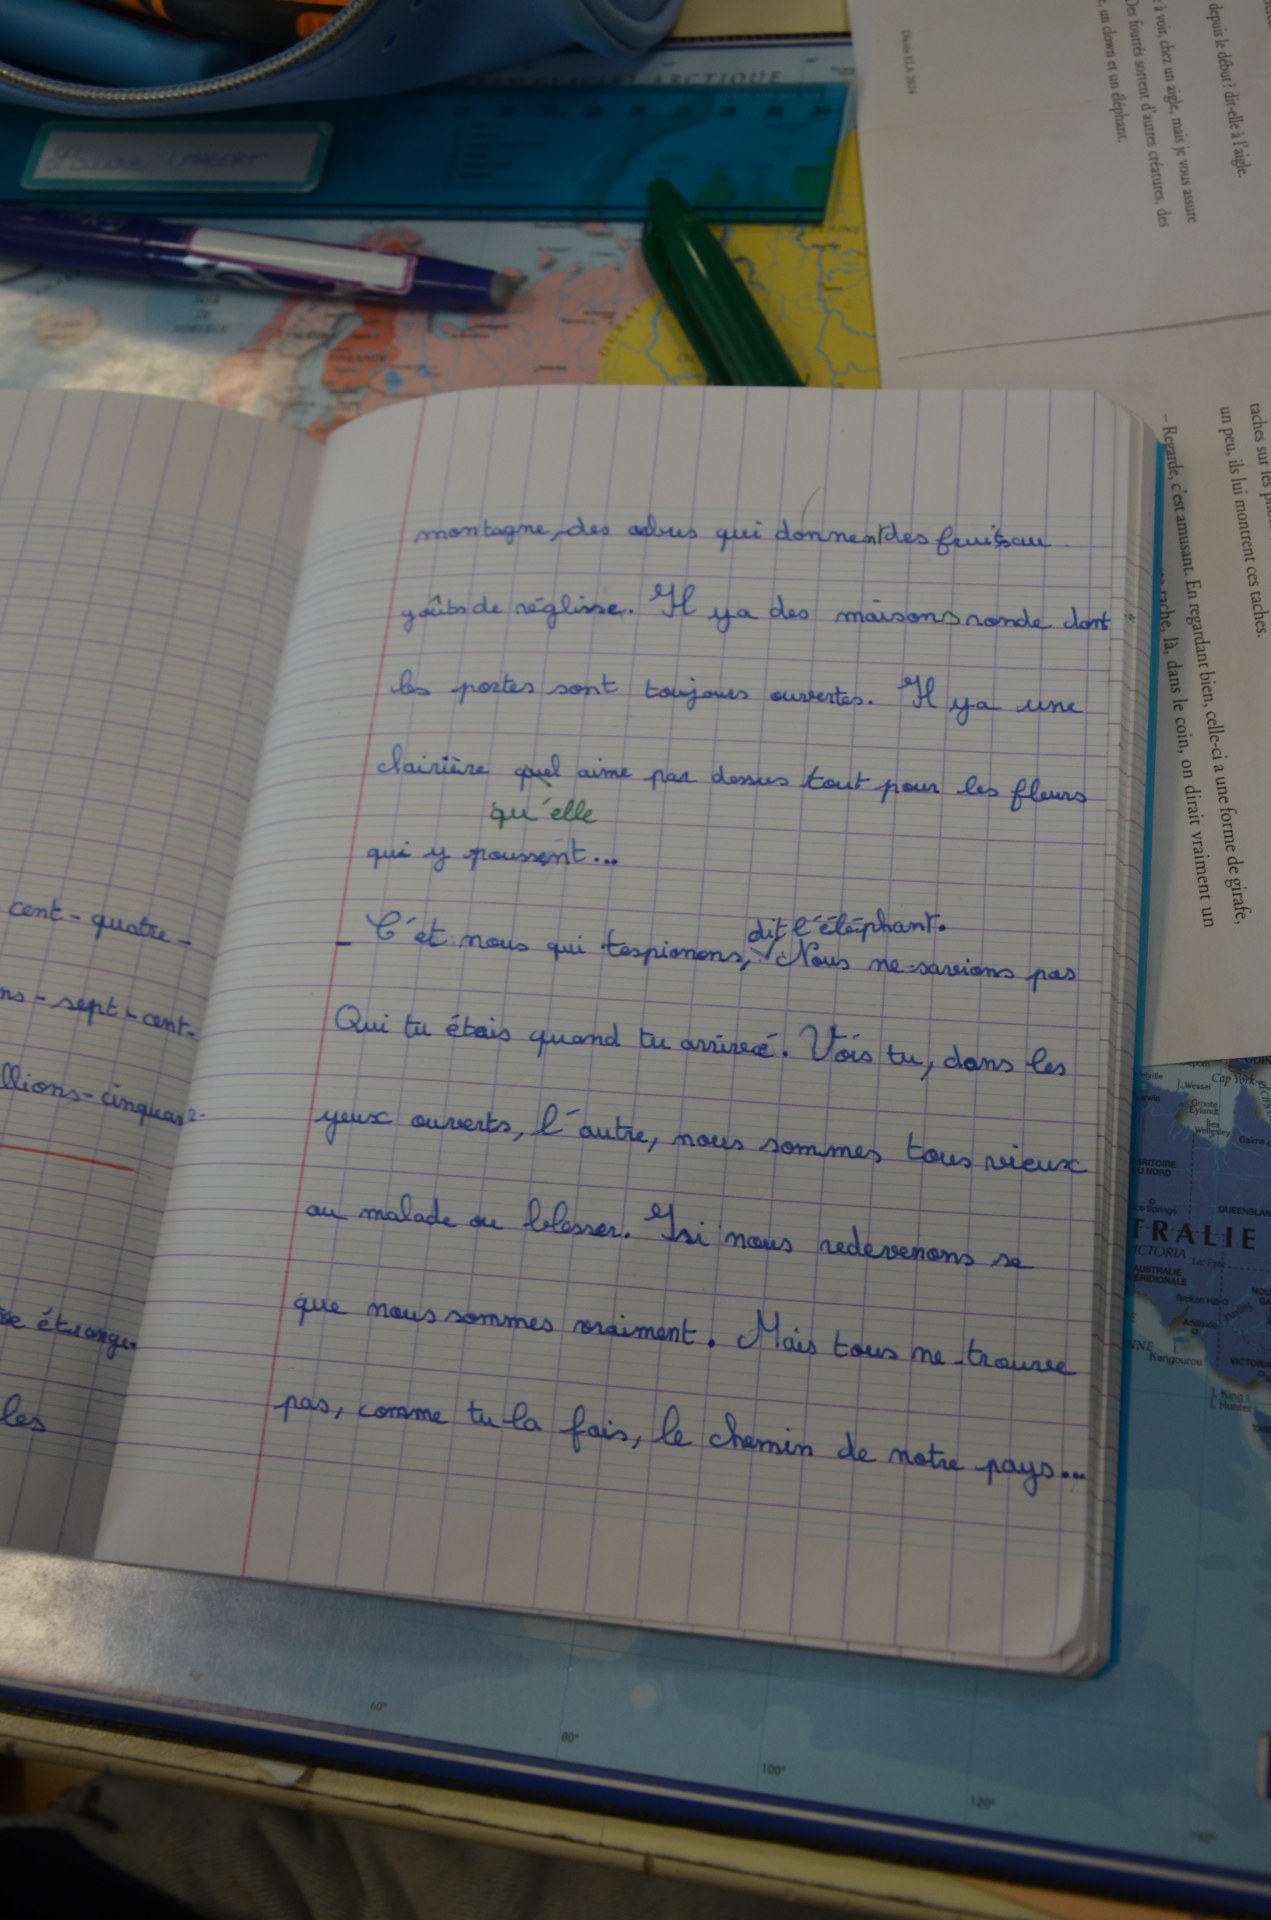 montagne, des aobres qui donnent des fruits au
goûts de réglisse. Il y a des maisons ronde dont
les portes sont toujours ouvertes. Il y a une
clairière quel aime par dessus tout pour les fleurs
qu'elle
qui y poussent...
dit l'éléphant.
- C'et nous qui tespionons, Nous ne savions pas
Qui tu étais quand tu arriveé. Vois tu, dans les
yeux ouverts, l'autre, nous sommes tous vieux
ou malade ou blesser. Isi nous redevenons se
que nous sommes vraiment. Mais tous ne trouve
pas, comme tu la fais, le chemin de notre pays...
cent-quatre-
ns-sept-cent-
llions-cinquan-
se étrange.
les
OCÉAN GLACIAL ARCTIQUE
MER DE NORVÈGE
OURAL
Dictée ELA 2019
depuis le début? dit-elle à l'aigle.
à voir, chez un aigle, mais je vous assure
Des fourrés sortent d'autres créatures, des
, un clown et un éléphant.
taches sur les
un peu, ils lui montrent ces taches.
– Regarde, c'est amusant. En regardant bien, celle-ci a une forme de girafe,
tache, là, dans le coin, on dirait vraiment un
I. Wessel
Cap York
Groote Eylandt
Îles Wellesley
Cairns
TERRITOIRE DU NORD
Alice Springs
QUEENSLAND
TRALIE
VICTORIA
Lac Eyre
AUSTRALIE MÉRIDIONALE
Broken Hill
Adélaïde
I. Kangourou
VICTORIA
I. King
I. Hunter
60°
80°
100°
120°